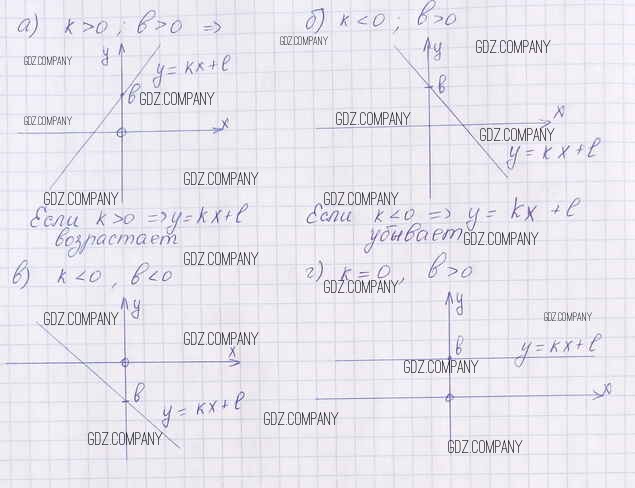 а) k > 0 ; b > 0 =>
GDZ.COMPANY
y
y = kx + l
b
GDZ.COMPANY
GDZ.COMPANY
x
GDZ.COMPANY
GDZ.COMPANY
Если k > 0 => y = kx + l
возрастает
б) k < 0 ; b > 0
GDZ.COMPANY
y
GDZ.COMPANY
b
GDZ.COMPANY
x
GDZ.COMPANY
y = kx + l
GDZ.COMPANY
Если k < 0 => y = kx + l
убывает
GDZ.COMPANY
GDZ.COMPANY
в) k < 0 , b < 0
y
GDZ.COMPANY
GDZ.COMPANY
x
b
y = kx + l
GDZ.COMPANY
GDZ.COMPANY
г) k = 0 , b > 0
GDZ.COMPANY
y
GDZ.COMPANY
b
y = kx + l
GDZ.COMPANY
x
GDZ.COMPANY